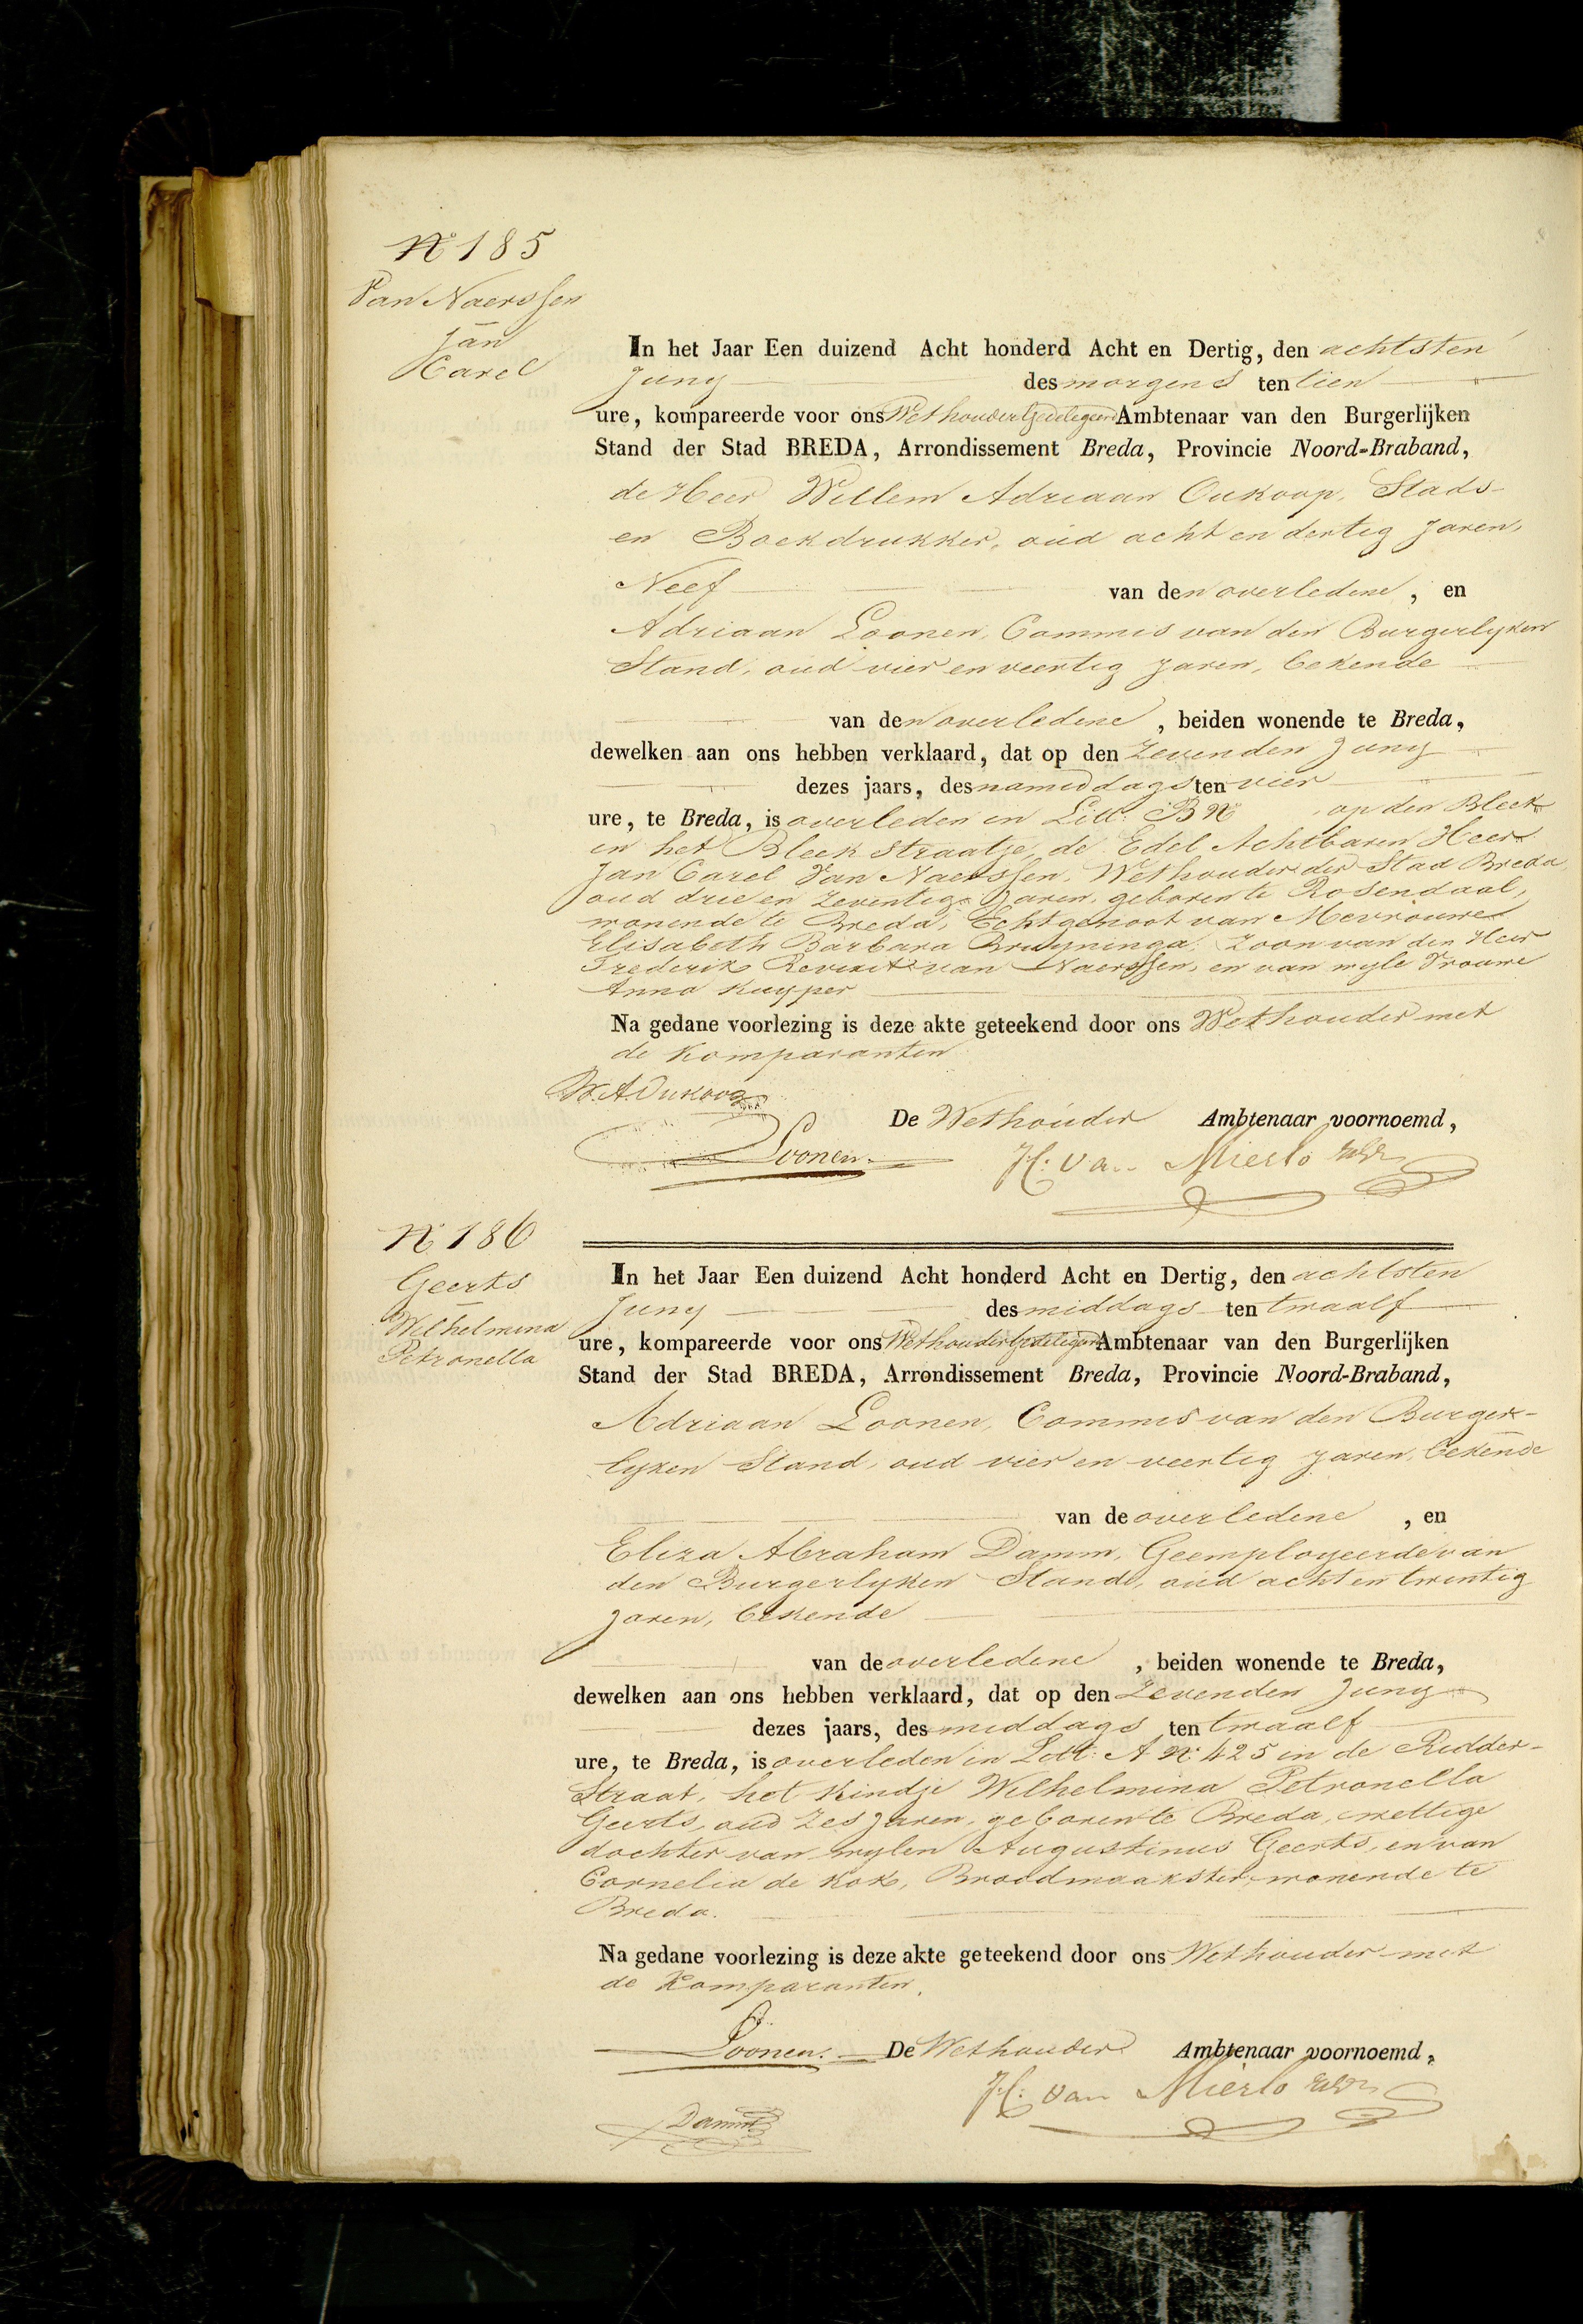 No 185
Van Naerssen
Jan
Carel
In het Jaar Een duizend Acht honderd Acht en Dertig, den achtsten
Juny des morgens ten tien
ure, kompareerde voor ons Wethouder Gedelegeerd Ambtenaar van den Burgerlijken
Stand der Stad BREDA, Arrondissement Breda, Provincie Noord-Braband,
de Heer Willem Adriaan Oukoop, Stads-
en Boekdrukker, oud acht en dertig Jaren,
Neef van den overledene, en
Adriaan Loonen, Commis van den Burgerlyken
Stand, oud vier en veertig Jaren, bekende
van den overledene, beiden wonende te Breda,
dewelken aan ons hebben verklaard, dat op den Zevenden Juny
dezes jaars, des namiddags ten vier
ure, te Breda, is overleden in Litt: B No op den Bleek
in het Bleek straatje, de Edel Achtbaren Heer
Jan Carel Van Naerssen, Wethouder der Stad Breda,
oud drie en Zeventig Jaren, geboren te Rosendaal,
wonende te Breda, Echtgenoot van Mevrouwe
Elisabeth Barbara Bruyninga, Zoon van den Heer
Frederik van Naerssen, en van wyle Vrouwe
Anna Kuyper
Na gedane voorlezing is deze akte geteekend door ons Wethouder met
de Komparanten
W. A. Oukoop
De Wethouder Ambtenaar voornoemd,
Loonen.
H: van Mierlo
No 186
Geerts
Wilhelmina
Petronella
In het Jaar Een duizend Acht honderd Acht en Dertig, den achtsten
Juny des middags ten twaalf
ure, kompareerde voor ons Wethouder Gedelegeerd Ambtenaar van den Burgerlijken
Stand der Stad BREDA, Arrondissement Breda, Provincie Noord-Braband,
Adriaan Loonen, Commis van den Burger-
lyken Stand, oud vier en veertig Jaren, bekende
van de overledene, en
Eliza Abraham Damm, Geemployeerde van
den Burgerlyken Stand, oud acht en twintig
Jaren, bekende
van de overledene, beiden wonende te Breda,
dewelken aan ons hebben verklaard, dat op den Zevenden Juny
dezes jaars, des middags ten twaalf
ure, te Breda, is overleden in Litt: A No 425 in de Ridder-
Straat, het Kindje Wilhelmina Petronella
Geerts, oud Zes Jaren, geboren te Breda, wettige
dochter van wylen Augustinus Geerts, en van
Cornelia de Kok, Broodmaakster, wonende te
Breda.
Na gedane voorlezing is deze akte geteekend door ons Wethouder met
de Komparanten.
Loonen. De Wethouder Ambtenaar voornoemd,
H: van Mierlo
Damm